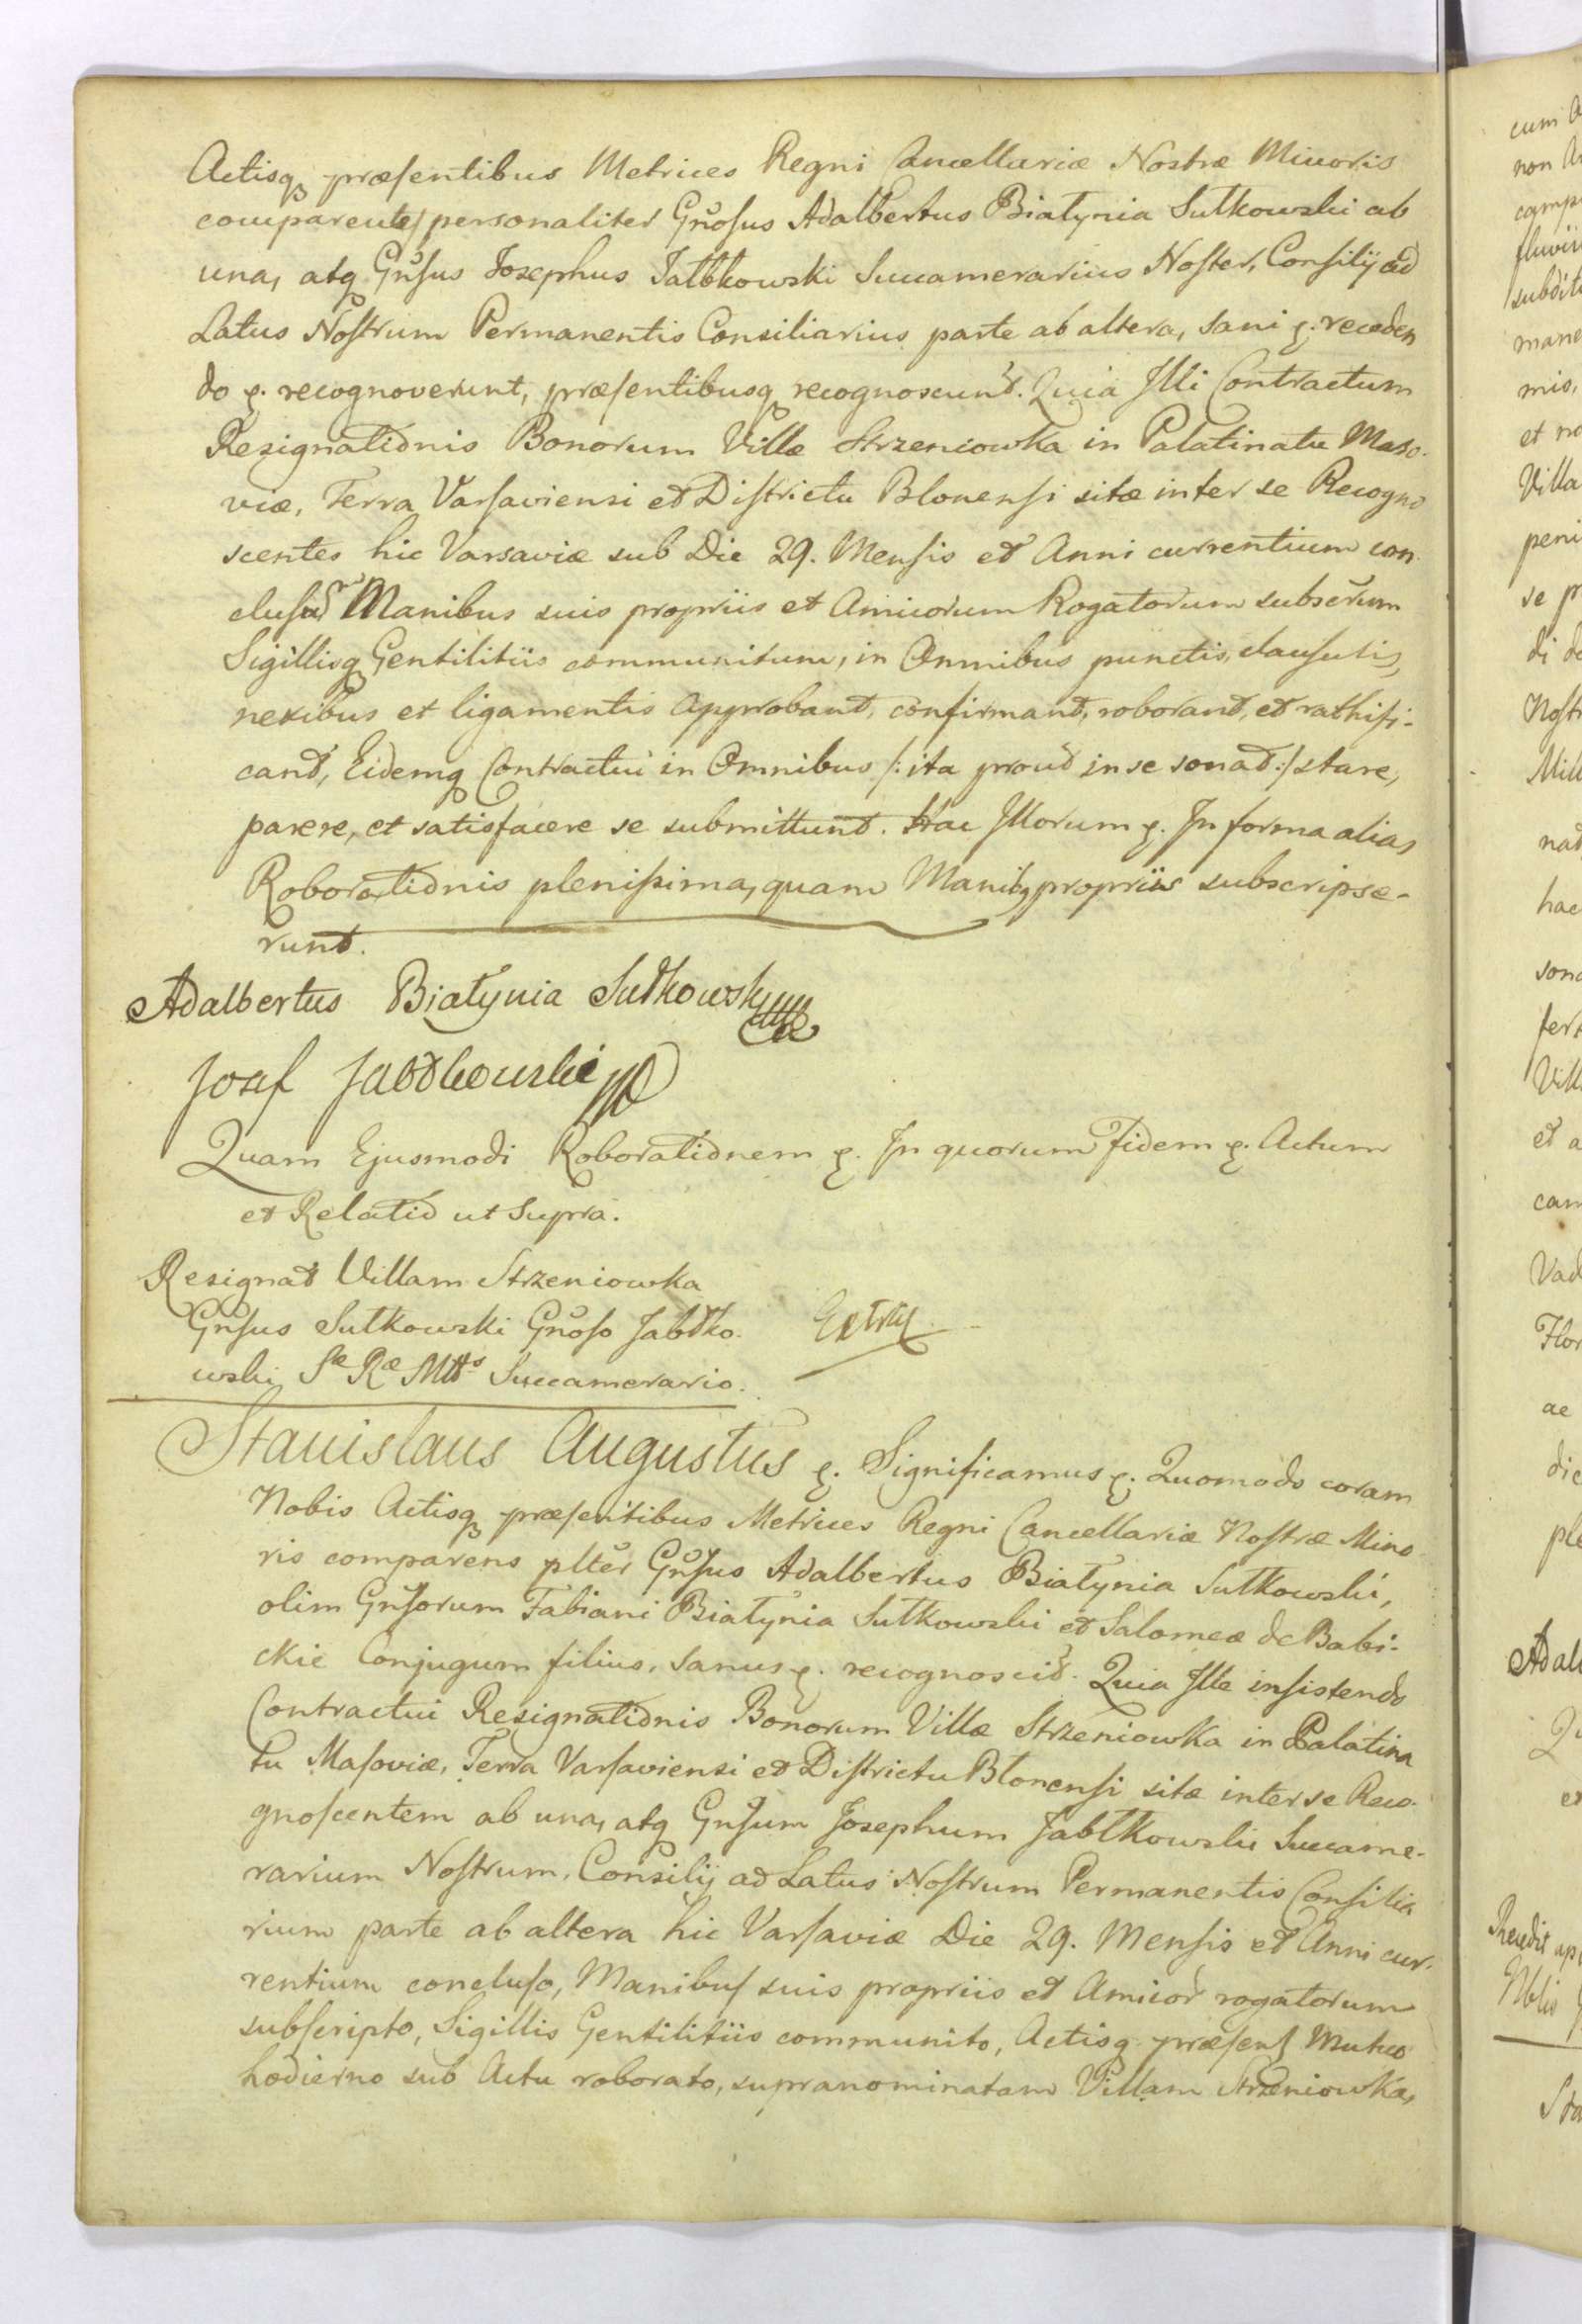 Actisq præsentibus Metrices Regni Cancellariæ Nostræ Minoris
comparentes personaliter Gnosus Adalbertus Białynia Sutkowski ab
una, atq Gnsus Josephus Jabłkowski Succamerarius Noster, Consilij ad
Latus Nostrum Permanentis Consiliarius parte ab altera, sani ę. receden
do ę. recognoverunt, præsentibusq recognoscunt. Quia Illi Contractum
Resignationis Bonorum Villæ Strzeniowka in Palatinatu Maso-
viæ, Terra Varsaviensi et Districtu Blonensi sitæ inter se Recogno
scentes hic Varsaviæ sub Die 29. Mensis et Anni currentium con
clusum Manibus suis propriis et Amicorum Rogatorum subscrum
Sigillisq Gentilitiis communitum, in Omnibus punctis, clausulis,
nexibus et ligamentis approbant, confirmant, roborant, et rathifi-
cant, Eidemq Contractui in Omnibus /: ita prout in se sonat :/ stare,
parere, et satisfacere se submittunt. Hac Illorum ę. In forma alias
Roborationis plenissima, quam Manibq propriis subscripse-
runt.
Adalbertus Białynia Sutkowski
Josef Jabłkowski
Quam Ejusmodi Roborationem ę. In quorum Fidem ę. Actum
et Relatio ut Supra.
Resignat Villam Strzeniowka
Gnsus Sutkowski Gnoso Jabłko-
wski Sæ Ræ Mttis Succamerario.
Extrad
Stanislaus Augustus ę. Significamus ę. Quomodo coram
Nobis Actisq præsentibus Metrices Regni Cancellariæ Nostræ Mino
ris comparens plter Gnsus Adalbertus Białynia Sutkowski,
olim Gnsorum Fabiani Białynia Sutkowski et Salomeæ de Babi-
ckie Conjugum filius, sanus ę. recognoscit. Quia Ille insistendo
Contractui Resignationis Bonorum Villæ Strzeniowka in Palatina
tu Masoviæ, Terra Varsaviensi et Districtu Blonensi sitæ inter se Reco-
gnoscentem ab una, atq Gnsum Josephum Jabłkowski Succame-
rarium Nostrum, Consilij ad Latus Nostrum Permanentis Consilia
rium parte ab altera hic Varsaviæ Die 29. Mensis et Anni cur-
rentium concluso, Manibus suis propriis et Amicor rogatorum
subscripto, Sigillis Gentilitiis communito, Actisq præsent Mutuo
hodierno sub Actu roborato, supranominatam Villam Strzeniowka,